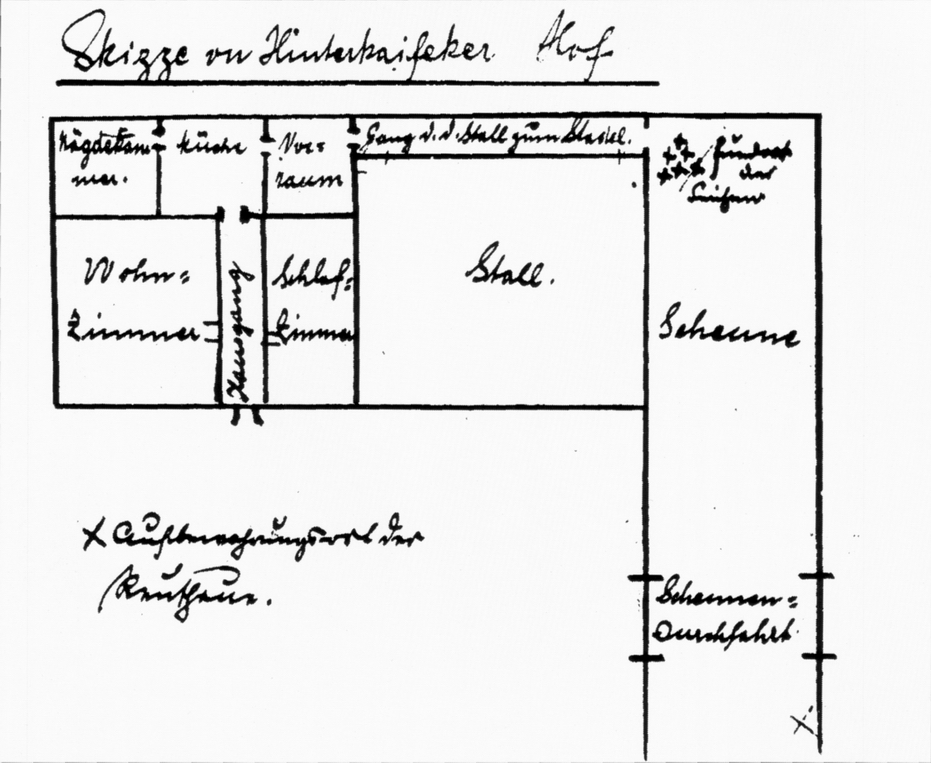 Skizze von Hinterkaifeker Hof
Mägdekam-
mer.
Küche
Vor=
raum
Gang v. d. Stall zum Stadel.
Fundort
der
Leichen
Wohn=
Zimmer
Hausgang
Schlaf=
Zimmer
Stall.
Scheune
x Aufbewahrungsort der
Reuthaue.
Scheunen=
durchfahrt
x